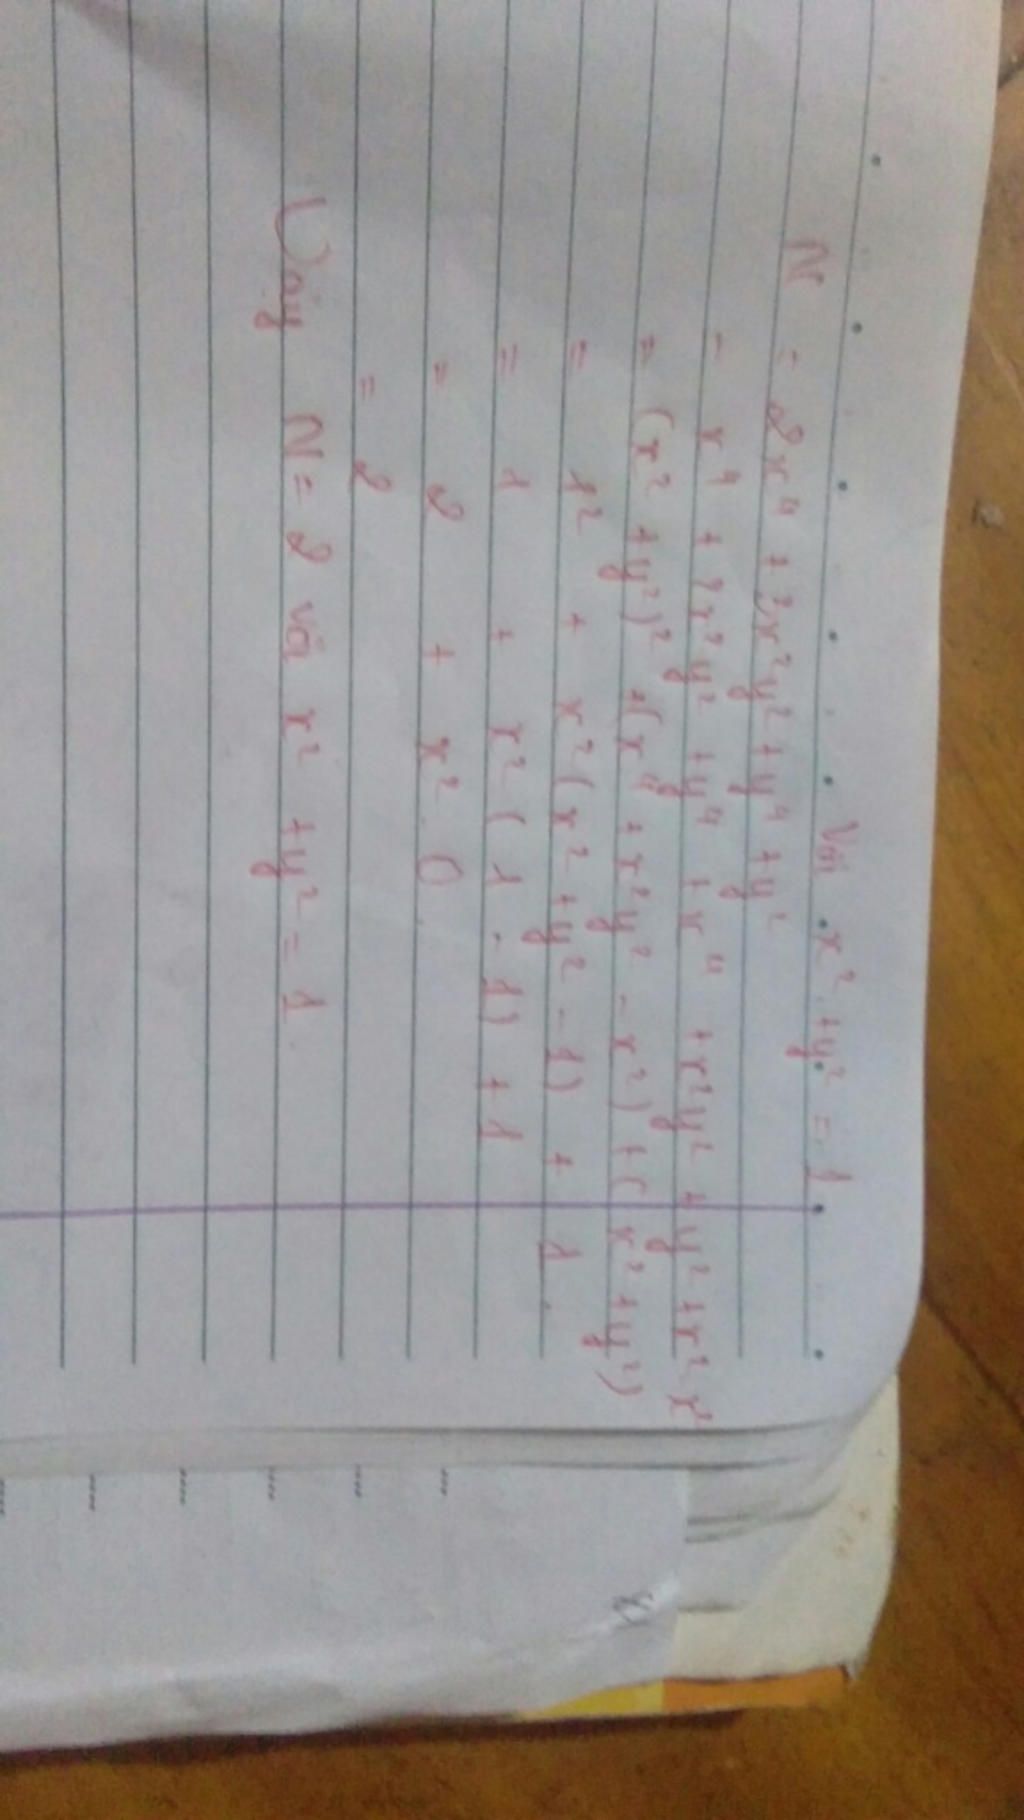 Với x² + y² = 1
N = 2x⁴ + 3x²y² + y⁴ + y²
= x⁴ + 2x²y² + y⁴ + x⁴ + x²y² + y² + x² - x²
= (x² + y²)² + (x⁴ + x²y² - x²) + (x² + y²)
= 1² + x²(x² + y² - 1) + 1.
= 1 + x²(1 - 1) + 1
= 2 + x².0.
= 2
Vậy N = 2 với x² + y² = 1.